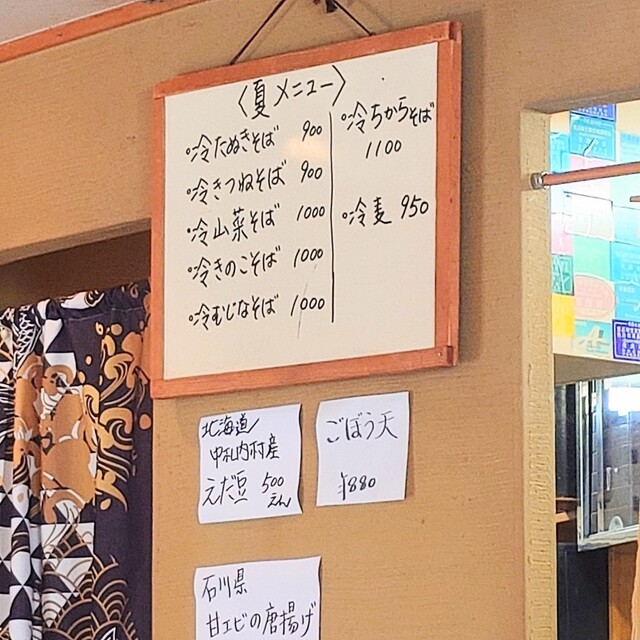 〈夏メニュー〉
・冷たぬきそば 900
・冷きつねそば 900
・冷山菜そば 1000
・冷きのこそば 1000
・冷むじなそば 1000
・冷ちからそば
1100
・冷麦 950
北海道
中札内村産
えだ豆 500
えん
ごぼう天
¥880
石川県
甘エビの唐揚げ